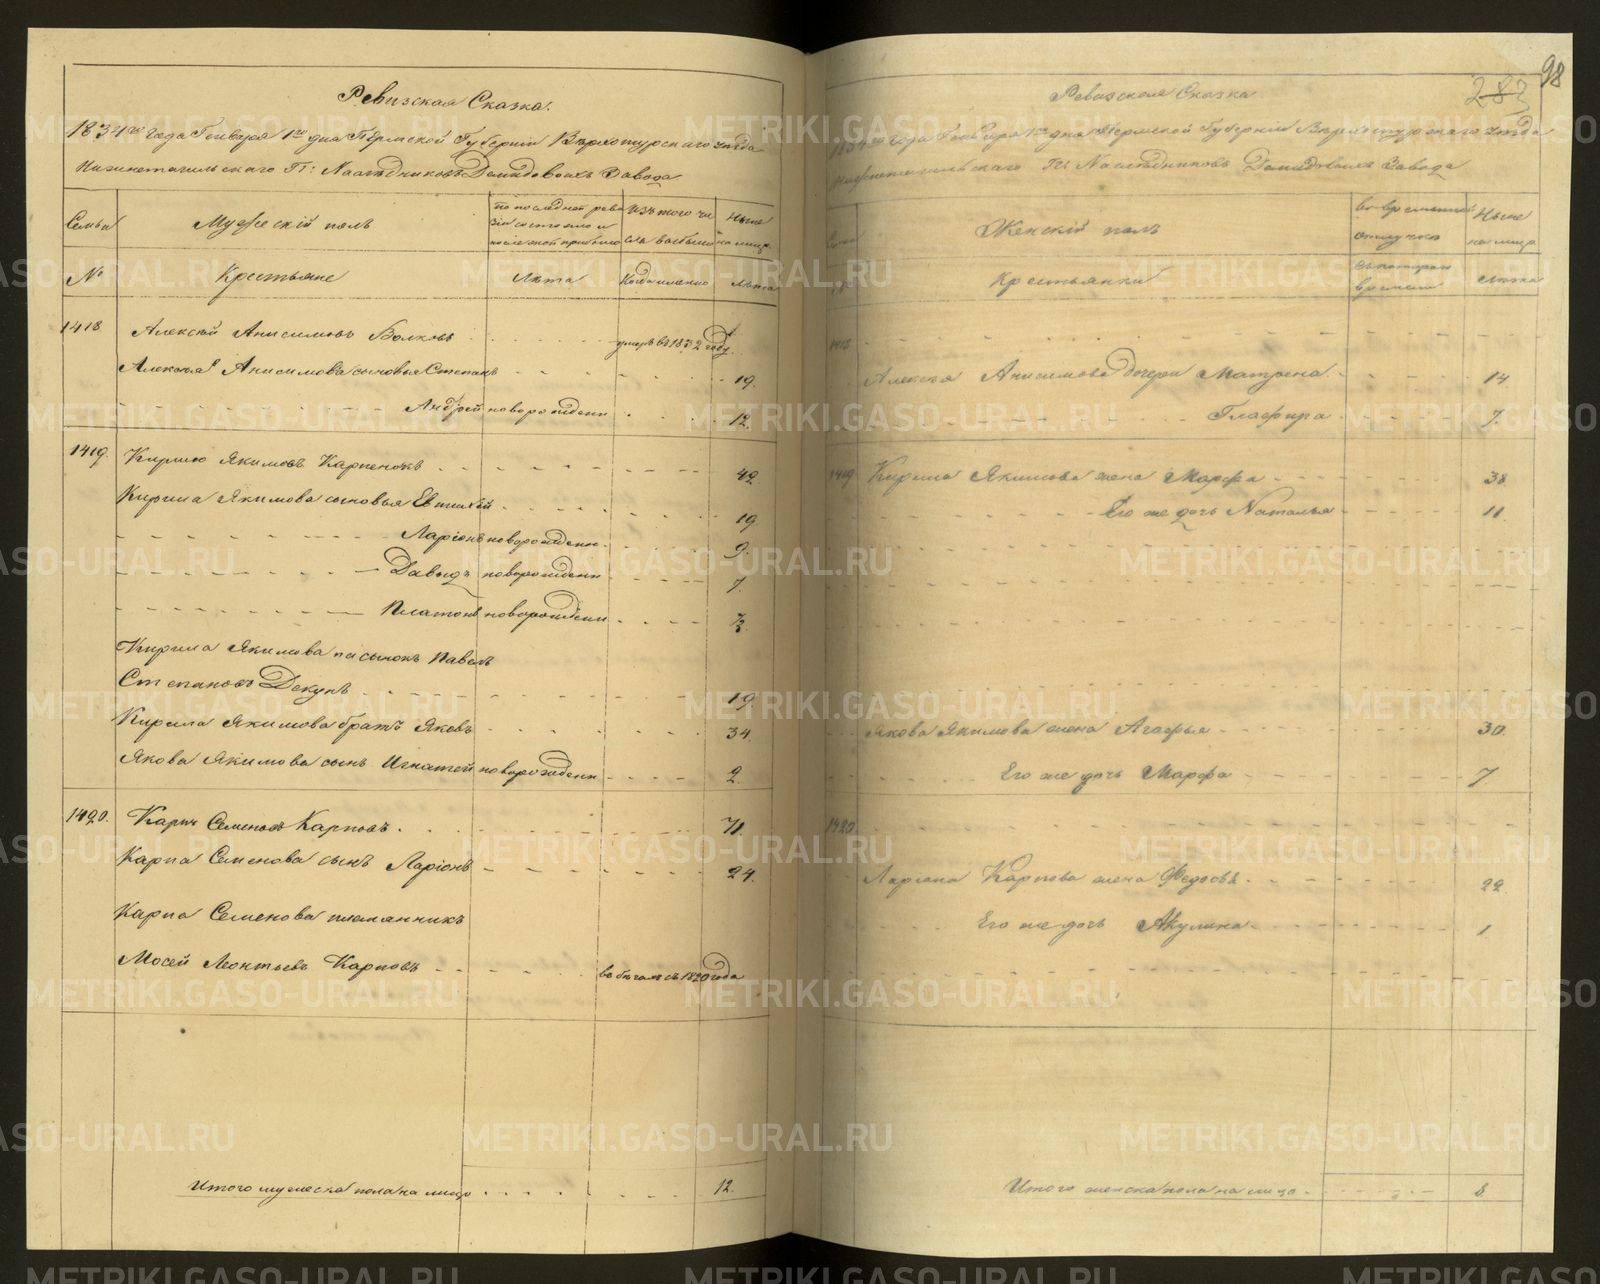 98
283
Ревизская Сказка.
1834го года Генваря 1го дня Пермской Губернiи Верхотурскаго уезда
Нижнетагильскаго Гг: Наследниковъ Демидовыхъ Завода
Семьи
Мужескiй полъ
по последней реви
зiи состояло и
после этой прибыло
Изъ того чи
сла выбыло
Ныне
на лицо
№
Крестьяне
Лета
Когда именно
Лета
1418 Алексей Анисимовъ Волковъ умеръ въ 1832 году.
Алексея Анисимова сыновья Степанъ 19.
Андрей новорожденн 12.
1419. Кирило Якимовъ Карпенокъ 42
Кирила Якимова сыновья Евтихей 19
Ларiонъ новорожденн. 9.
Давыдъ новорожденн 7
Платонъ новорожденн
Кирила Якимова пасынокъ Павелъ
Степановъ Декунъ 19
Кирила Якимова братъ Яковъ 34
Якова Якимова сынъ Игнатей новорожденн 2.
1420. Карпъ Семеновъ Карповъ. 71.
Карпа Семенова сынъ Ларiонъ 24.
Карпа Семенова племянникъ
Мосей Леонтьевъ Карповъ въ бегахъ съ 1820 года
Итого мужеска пола на лицо 12.
Ревизская Сказка
1834го года Генваря 1го дня Пермской Губернiи Верхотурскаго уезда
Нижнетагильскаго Гг: Наследниковъ Демидовыхъ Завода
Женскiй полъ
во временной
отлучке
Ныне
на лицо
Крестьянки
съ котораго
времени
Лета
1418
Алексея Анисимова дочери Матрена 14
Глафира 7.
1419 Кирила Якимова жена Марфа 38
Его же дочь Наталья 11.
Якова Якимова жена Агафья 30.
Его же дочь Марфа 7
1420
Ларiона Карпова жена Федосья 22
Его же дочь Акулина 1
Итого женска пола на лицо 8
METRIKI.GASO-URAL.RU